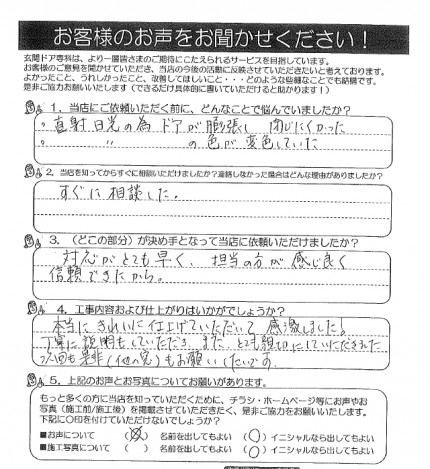 お客様のお声をお聞かせください！
玄関ドア専科は、より一層皆さまのご期待にこたえられるサービスを目指しています。
お客様のご意見を聞かせていただき、当店の今後の活動に反映させていただきたいと考えております。
よかったこと、うれしかったこと、改善してほしいこと・・・どのような些細なことでも結構です。
是非ご協力お願いいたします（できるだけ具体的に書いていただけると助かります！）
1. 当店にご依頼いただく前に、どんなことで悩んでいましたか？
。直射日光の為 ドアが膨張し 閉じにくかった
。 〃 の色が変色していた
2. 当店を知ってからすぐに相談いただけましたか？連絡しなかった場合はどんな理由がありましたか？
すぐに相談した。
3. （どこの部分）が決め手となって当店に依頼いただけましたか？
対応がとても早く、担当の方が感じ良く
信頼できたから。
4. 工事内容および仕上がりはいかがでしょうか？
本当にきれいに仕上げていただいて 感激しました！
丁寧に説明もしていただき、また、とても親切にしていただきました
次回も是非（他の窓）もお願いしたいです。
5. 上記のお声とお写真についてお願いがあります。
もっと多くの方に当店を知っていただくために、チラシ・ホームページ等にお声やお
写真（施工前/施工後）を掲載させていただきたく、是非ご協力をお願いいたします。
下記に〇印を付けていただけないでしょうか？
■お声について （ ） 名前を出してもよい （〇） イニシャルなら出してもよい
■施工写真について （ ） 名前を出してもよい （〇） イニシャルなら出してもよい